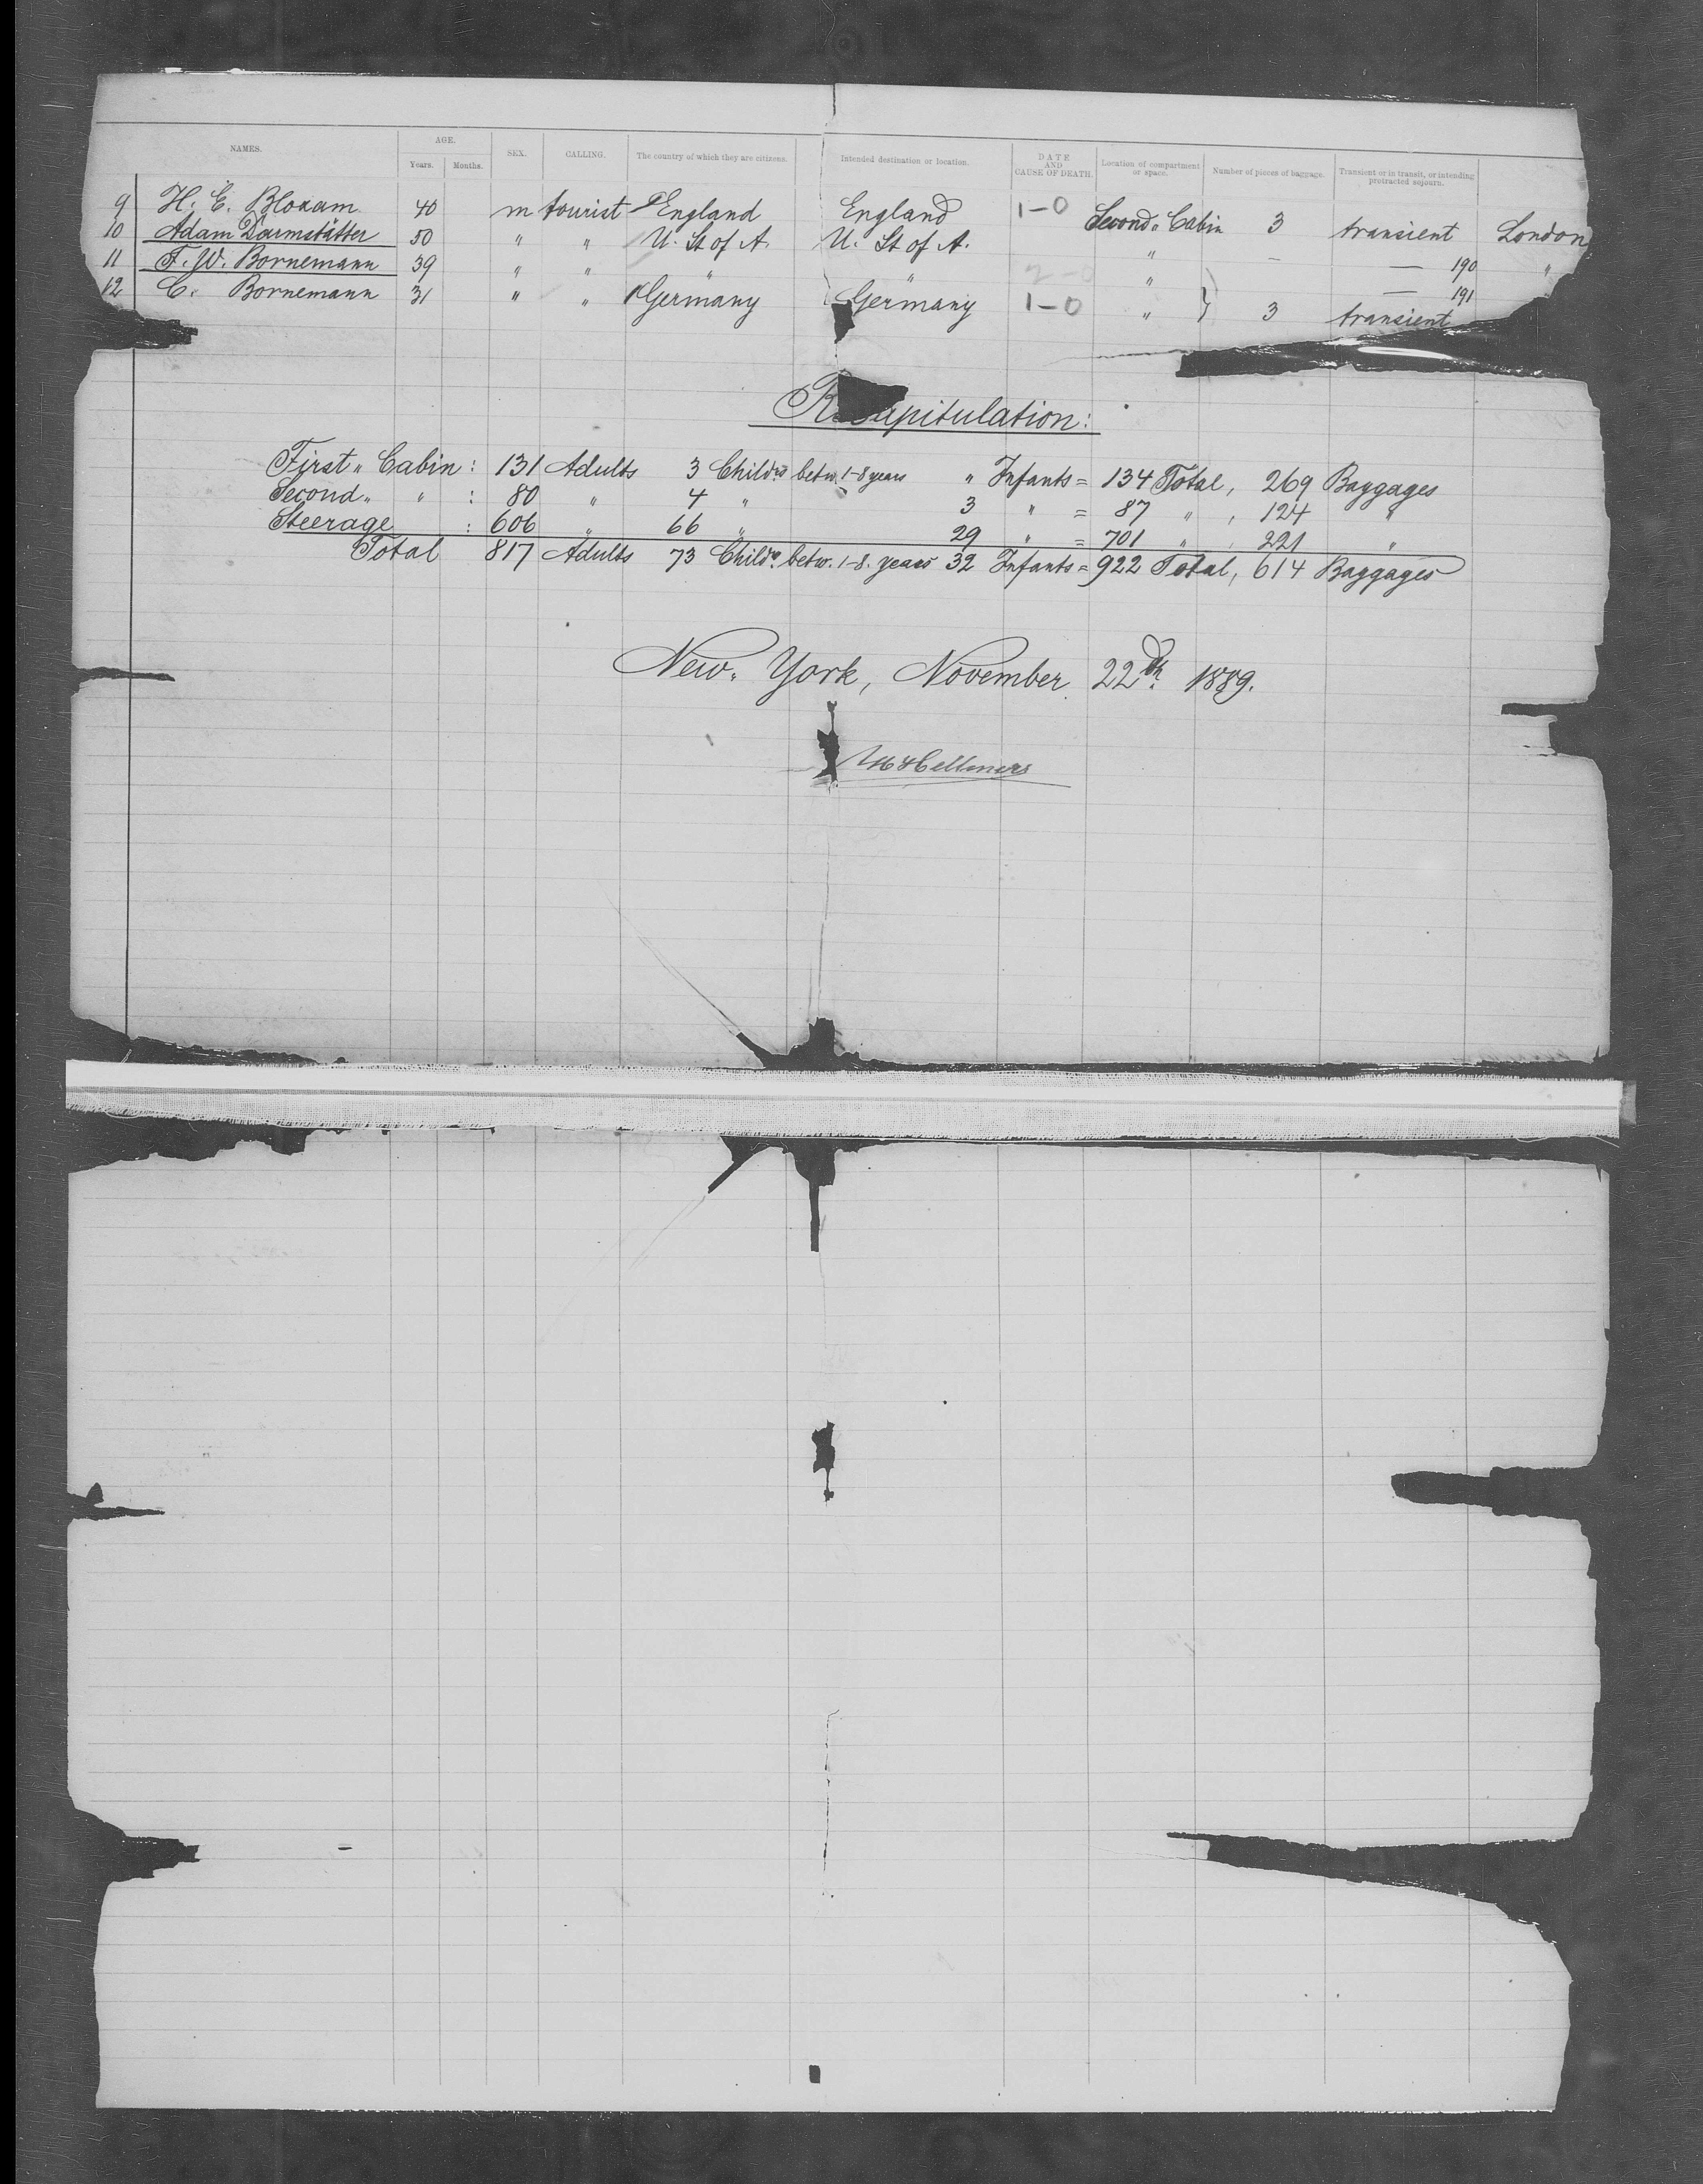 NAMES. AGE. SEX. CALLING. The country of which they are citizens. Intended destination or location. DATE AND CAUSE OF DEATH. Location of compartment or space. Number of pieces of baggage. Transient or in transit, or intending protracted sojourn.
Years. Months.
9 H. E. Bloxam 40 m tourist England England 1-0 Second " Cabin 3 transient London
10 Adam Darmstätter 50 " " U. St of A. U. St of A. " — — 190 "
11 F. W. Bornemann 39 " " " " 2-0 " — 191
12 C. Bornemann 31 " " Germany Germany 1-0 " } 3 transient
Recapitulation:
First " Cabin : 131 Adults 3 Childrn betw. 1-8 years " Infants = 134 Total, 269 Baggages
Second " " : 80 " 4 " 3 " = 87 " , 124 "
Steerage : 606 " 66 " 29 " = 701 " , 221 "
Total 817 Adults 73 Childrn betw. 1-8. years 32 Infants = 922 Total, 614 Baggages
New York, November 22th 1889.